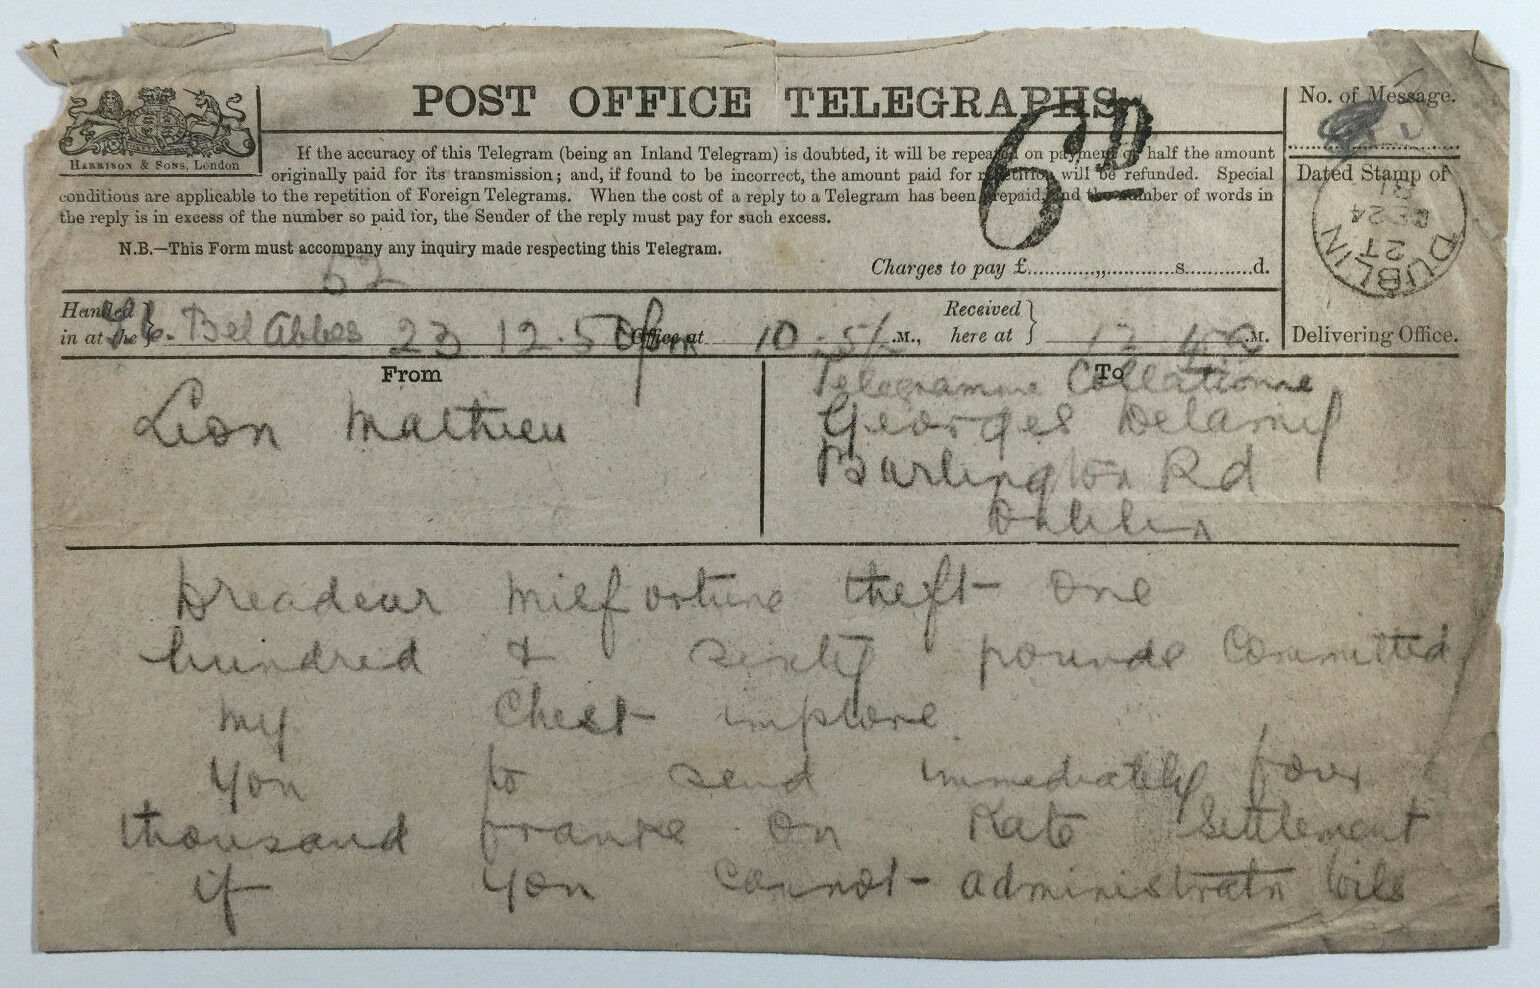 POST OFFICE TELEGRAPHS.
HARRISON & SONS, London
If the accuracy of this Telegram (being an Inland Telegram) is doubted, it will be repeated on payment of half the amount
originally paid for its transmission; and, if found to be incorrect, the amount paid for repetition will be refunded. Special
conditions are applicable to the repetition of Foreign Telegrams. When the cost of a reply to a Telegram has been prepaid, and the number of words in
the reply is in excess of the number so paid for, the Sender of the reply must pay for such excess.
N.B.—This Form must accompany any inquiry made respecting this Telegram.
6D
Charges to pay £ s. d.
No. of Message.
Dated Stamp of
DUBLIN
27
DE 24
Delivering Office.
52
Handed in at the Bel Abbes 23 12.50pm Office at 10.5 .M.,
Received here at 12 .M.
From
Lion Mathieu
To
Telegramme Collationne
Georges Delamy
Burlington Rd
Dublin
Dreadeur Misfortune theft one
hundred & sixty pounds Committed
my Chest implore
you to send immediately four
thousand franke on Kate Settlement
if you cannot administratn